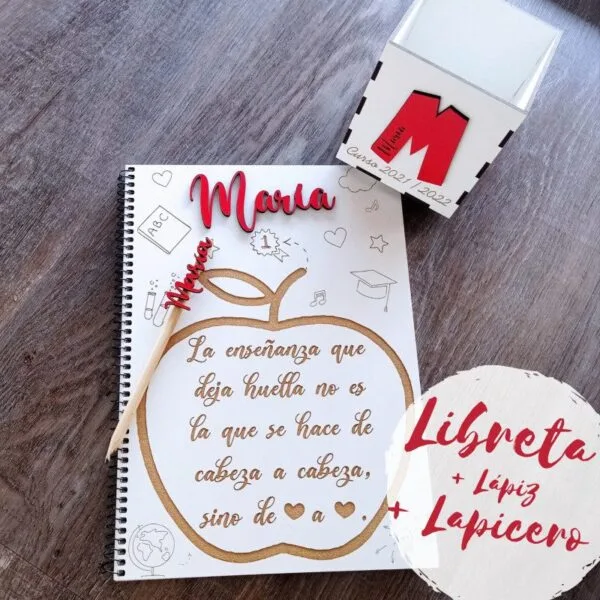 María
Curso 2021 / 2022
María
ABC
1
María
La enseñanza que
deja huella no es
la que se hace de
cabeza a cabeza,
sino de ♥ a ♥.
Libreta
+ Lápiz
+ Lapicero